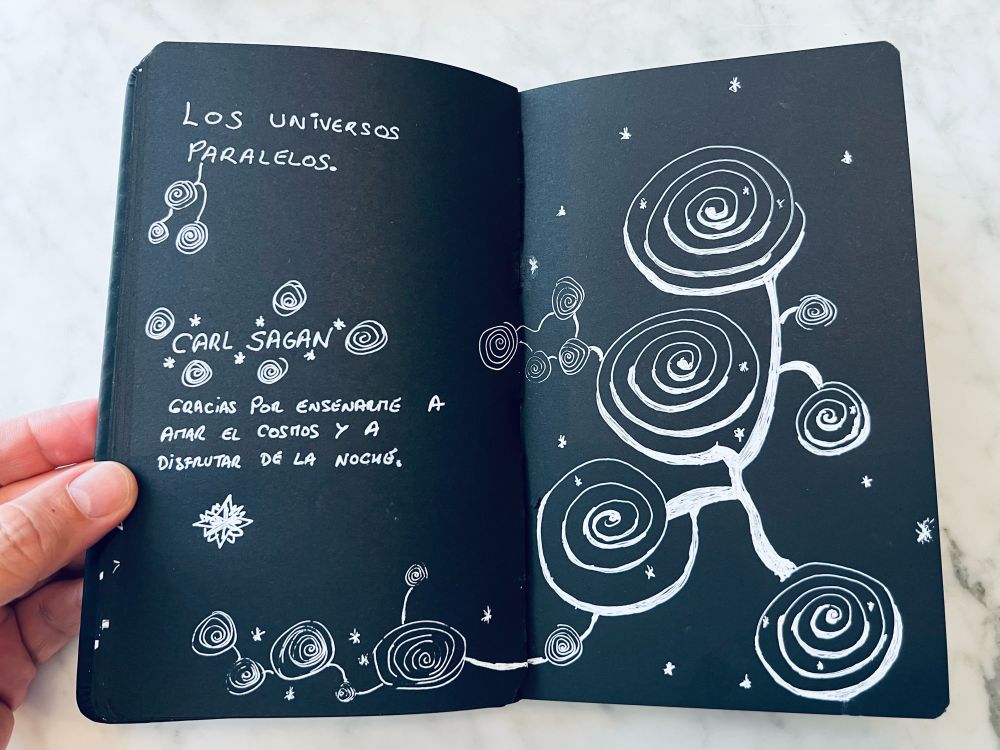 LOS UNIVERSOS
PARALELOS.
CARL SAGAN
GRACIAS POR ENSENARME A
AMAR EL COSMOS Y A
DISFRUTAR DE LA NOCHE.